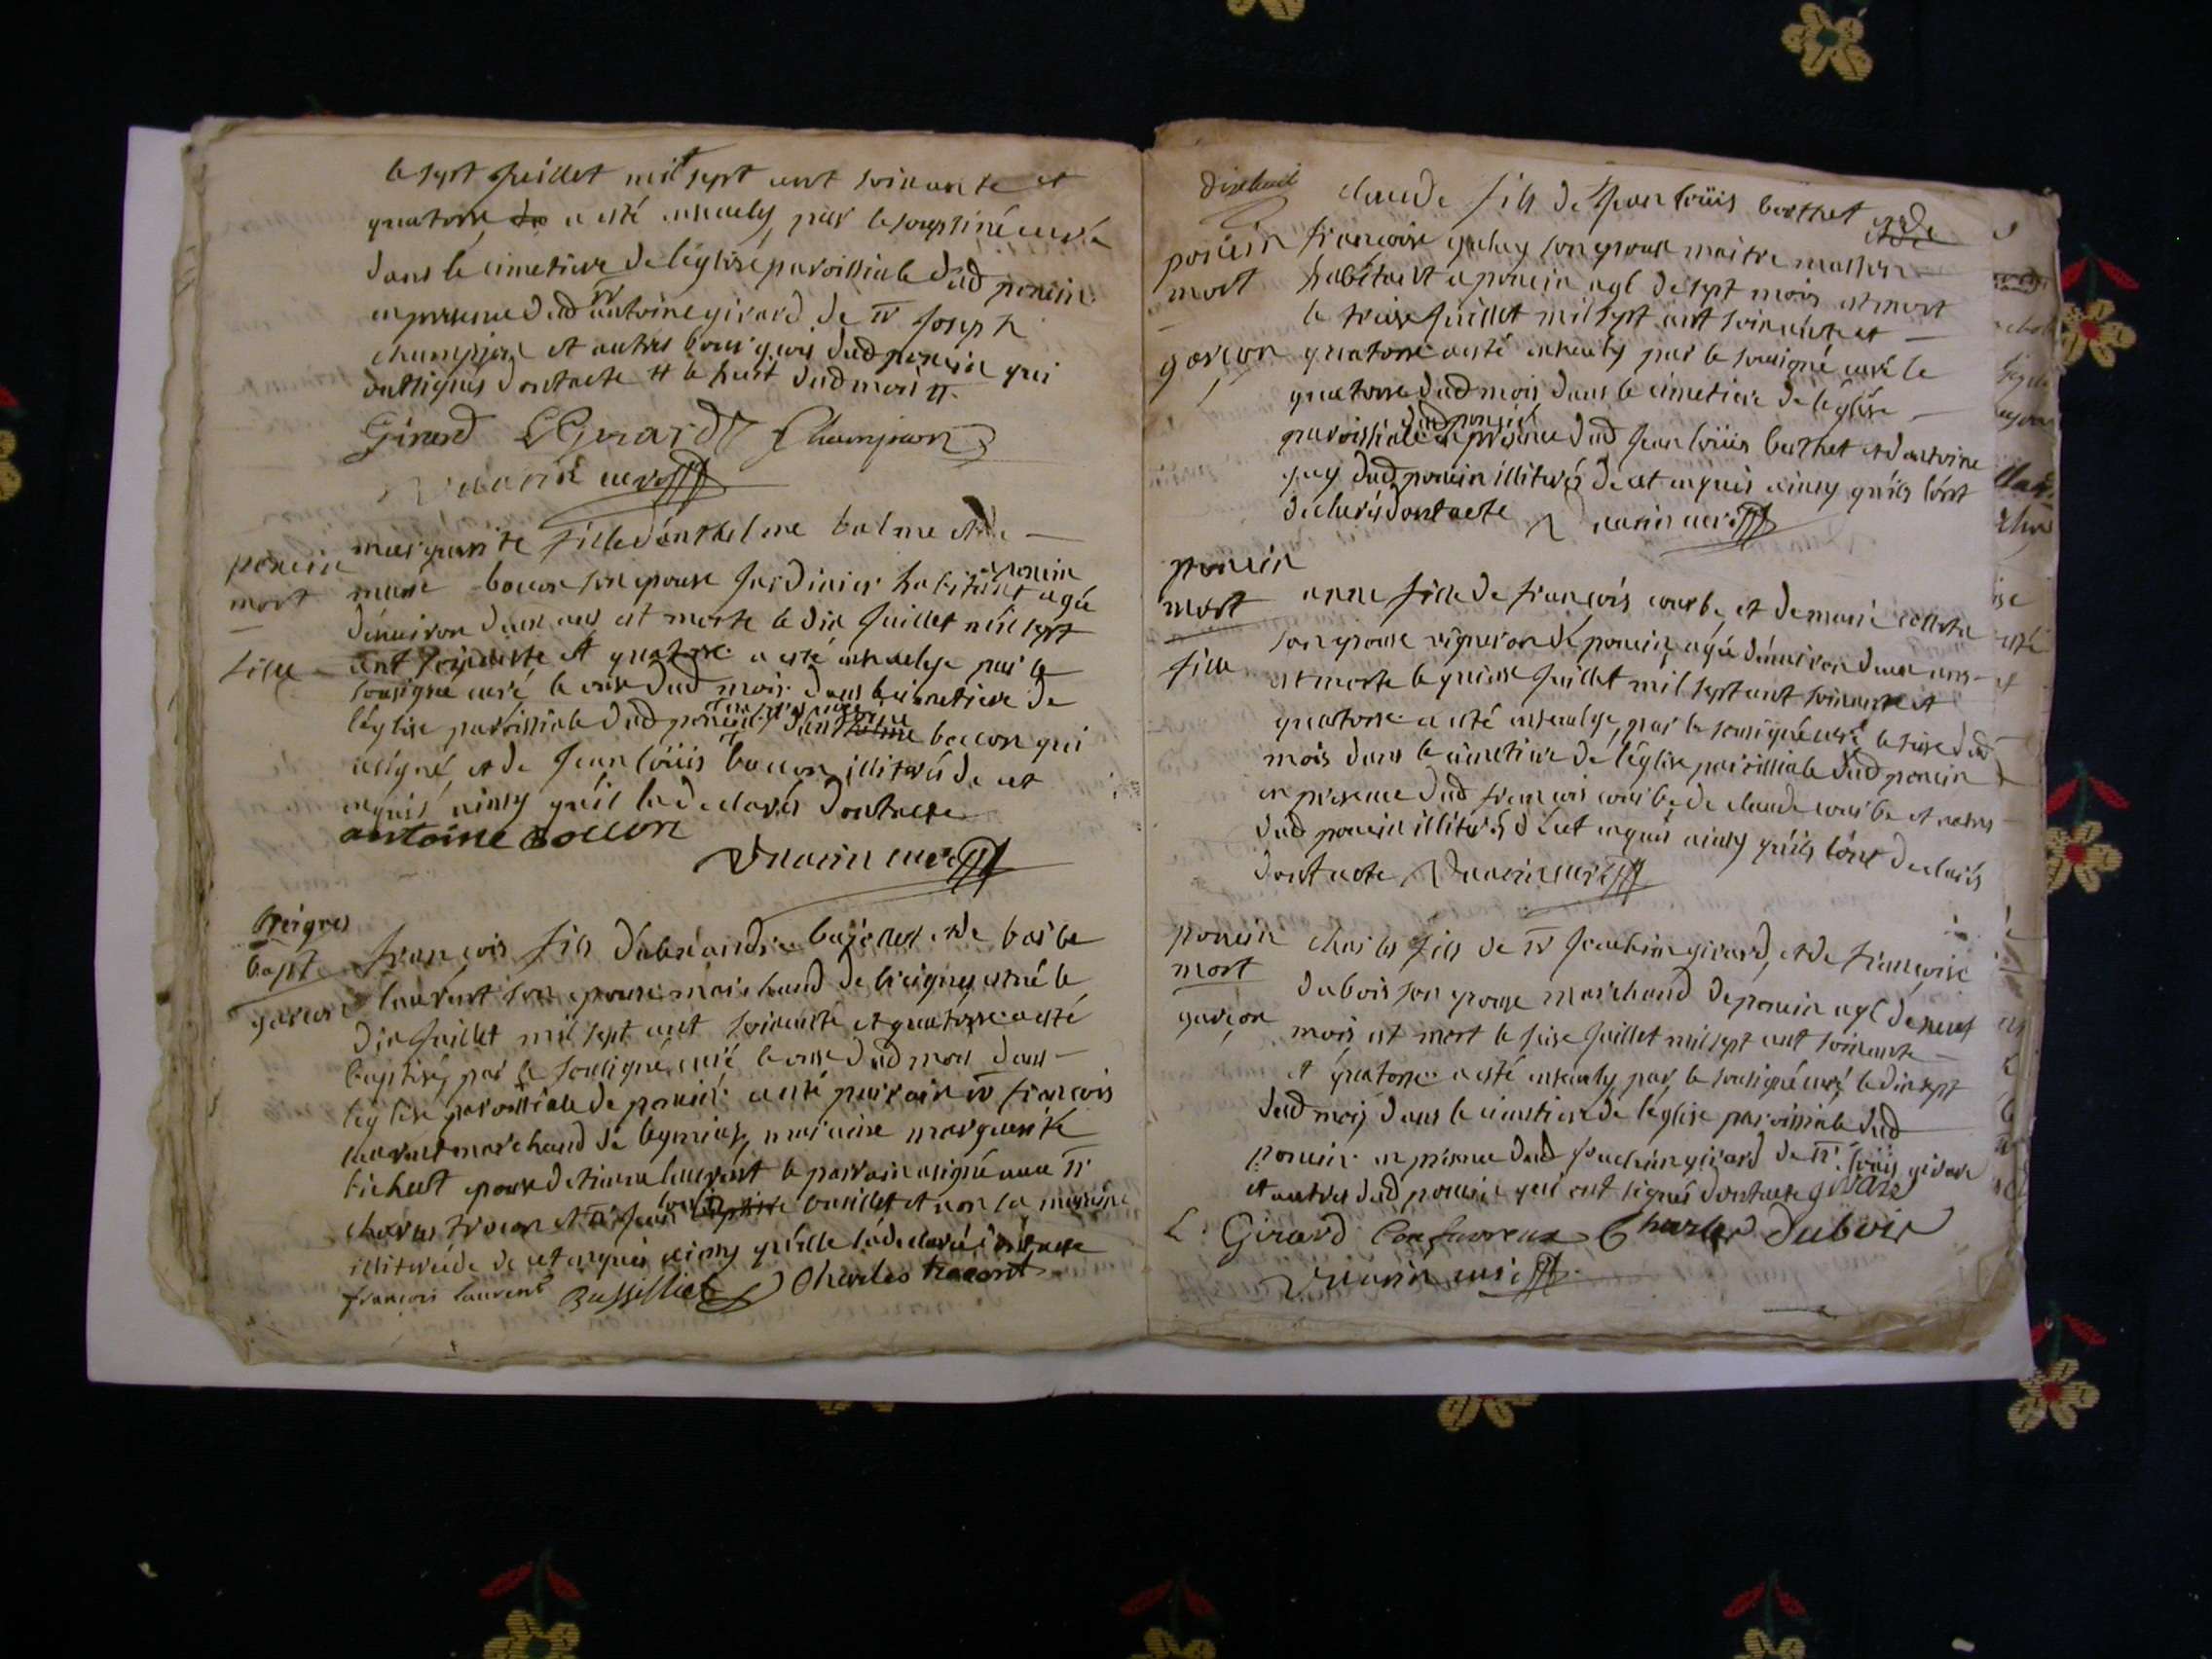 le sept juillet mil sept cent soixante et
quatorze a esté ensevely par le soussiné curé
dans le cimetiere de l'église paroissiale dud poncin
en presence dud sr antoine girard de sr joseph
champion et autres bourgeois dud poncin qui
ont signés dont acte # le huit dud mois #.
Girard LGirard Champion
curé
poncin
mort
fille
marguerite fille d'anthelme balme et de
boccon son epouse jardinier habitant a poncin agée
d'environ deux ans est morte le dix juillet mil sept
cent soixante et quatorze a esté ensevelye par le
sousigné curé le onze dud mois dans le cimetiere de
l'église paroissiale dud poncin en presence d'antoine boccon qui
a signé, et de jean loüis boccon illiteré de cet
enquis ainsy qu'il la declaré dont acte
antoine Boccon
curé
bapt
garcon
françois fils d'alexandre et de barbe
laurent son epouse marchand de est né le
dix juillet mil sept cent soixante et quatorze a esté
baptisé par le sousigné curé le onze dud mois dans
l'église paroissiale de poncin a esté parrain sr françois
laurent marchand de maraine marguerite
epouse de laurent le parrain a signé avec sr
charles et sr jean et non la maraine
illiterée de cet enquis ainsy qu'elle la declaré dont acte
françois laurent Charles tracont
dixhuit
poncin
mort
garcon
claude fils de jean loüis berthet et de
françoise son epouse maitre masson
habitant a poncin agé de sept mois est mort
le treize juillet mil sept cent soixante et
quatorze a esté ensevely par le sousigné curé le
quatorze dud mois dans le cimetiere de l'église
paroissiale dud poncin en presence dud jean loüis berthet et d'antoine
dud poncin illiterés de cet enquis ainsy qu'ils l'ont
declarés dont acte curé
poncin
mort
fille
anne fille de françois courbe et de marie
son epouse vigneron de poncin agée d'environ deux ans
est morte le quinze juillet mil sept cent soixante et
quatorze a esté ensevelye par le sousigné curé le seize dud
mois dans le cimetiere de l'église paroissiale dud poncin
en presence dud françois courbe de claude courbe et autres
dud poncin illiterés de cet enquis ainsy qu'ils l'ont declarés
dont acte curé
poncin
mort
garçon
charles fils de sr joachim girard, et de françoise
dubois son epouse marchand de poncin agé de neuf
mois est mort le seize juillet mil sept cent soixante
et quatorze a esté ensevely par le sousigné curé le dix sept
dud mois dans le cimetiere de l'église paroissiale dud
poncin en presence dud joachim girard de sr loüis girard
et autres dud poncin qui ont signés dont acte girard
L. Girard Charles Dubois
curé